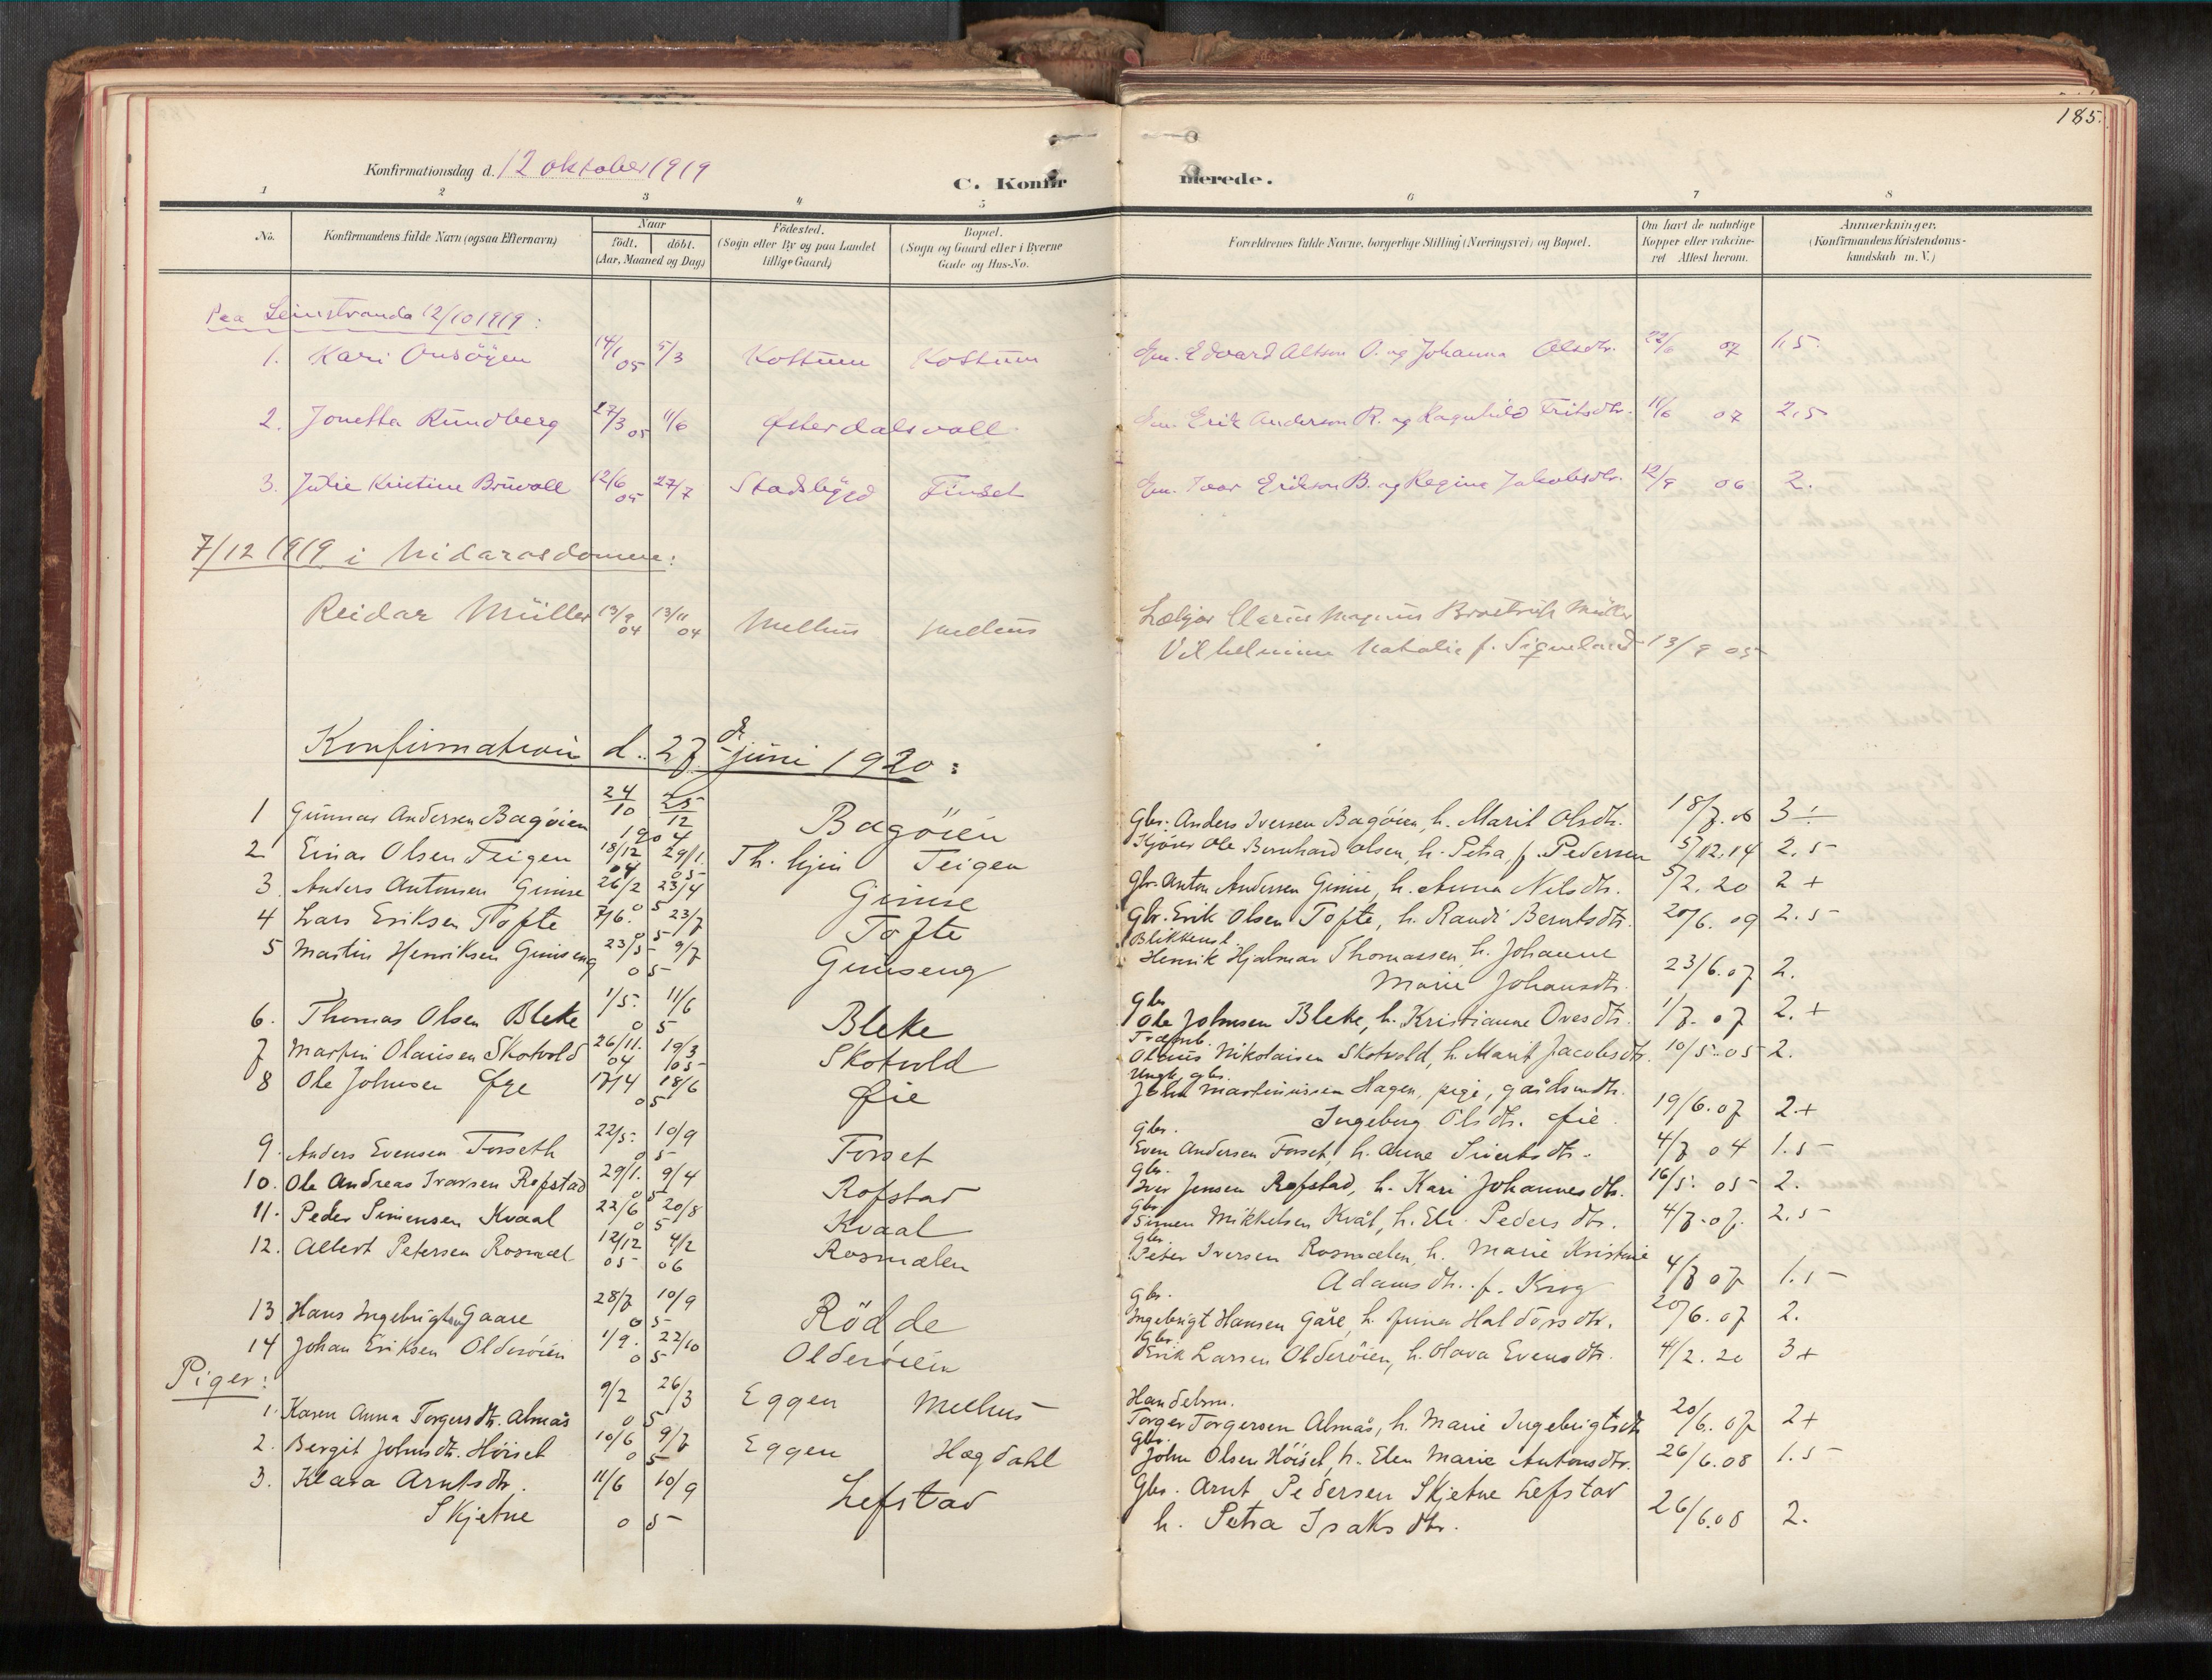 185.
Konfirmationsdag d. 12 oktober 1919
C. Konfirmerede.
1 2 3 4 5 6 7 8
No. Konfirmandens fulde Navn (ogsaa Efternavn) Naar födt. döbt. (Aar, Maaned og Dag) Födested. (Sogn eller By og paa Landet tillige Gaard) Bopæl. (Sogn og Gaard eller i Byerne Gade og Hus-No. Forældrenes fulde Navne, borgerlige Stilling (Næringsvei) og Bopæl. Om havt de naturlige Kopper eller vakcineret Attest herom. Anmærkninger. (Konfirmandens Kristendomskundskab m. V.)
Paa Leinstranda 12/10 1919:
1. Kari Onsöyen 14/1 05 5/3 Kottum Kottum Gm. Edvard Altson O. og Johanna Olsdtr. 22/6 07 1,5
2. Jonetta Rundberg 27/3 05 11/6 Østerdalsvoll Gm. Erik Anderson R. og Ragnhild Fritsdtr. 11/6 07 2,5
3. Julie Kristine Bruvoll 12/6 05 27/7 Stadsbygd Gm. Ivar Erikson B. og Regina Jakobsdtr. 12/9 06 2.
7/12 1919 i Nidarosdomen:
Reidar Müller 13/9 04 13/11 04 Melhus Melhus Magnus Müller
Vilhelmine Natalie f. Siqueland 13/9 05
Konfirmation d. 27de juni 1920:
1 Gunnar Andersen Bagöien 24/10 25/12 1904 Bagöien Gbr. Anders Iversen Bagöien, h. Marit Olsdtr. 18/7. 06 3 ÷
2 Einar Olsen Teigen 18/12 04 29/1. 05 Th.hjem Teigen Kjörer Ole Bernhard Olsen, h. Petra f. Pedersen 5/12.14 2.5
3. Anders Antonsen Gimse 26/2 23/4 05 Gimse Gbr. Anton Andersen Gimse, h. Anna Nilsdtr. 5/2. 20 2 +
4 Lars Eriksen Tofte 7/6. 23/7 05 Tofte Gbr. Erik Olsen Tofte, h. Randi Berntsdtr. 20/6. 09 2.5
5 Martin Henriksen Gimseng 23/5 9/7 05 Gimseng Blikkensl. Henrik Hjalmar Thomassen, h. Johanne
Marie Johansdtr. 23/6.07 2.
6. Thomas Olsen Bleke 1/5. 11/6 05 Bleke Gbr. Ole Johnsen Bleke, h. Kristianne Ovesdtr. 1/7. 07 2. +
7 Martin Olausen Skotvold 26/11. 04 19/3 05 Skotvold Olaus Nikolaisen Skotvold, h. Marit Jacobsdtr. 10/5.05 2.
8 Ole Johnsen Øye 17/4 18/6 05 Øie Ungk, gbr. John Martinussen Hagen, pige, gårdmdtr.
Ingeborg Olsdtr. Øie. 19/6.07 2+
9. Anders Evensen Forseth 22/5. 10/9 05 Forset gbr. Even Andersen Forset, h. Anne Sivertsdtr. 4/7 04 1.5
10. Ole Andreas Ivarsen Rofstad 29/1. 9/4 05 Rofstad Gbr. Iver Jensen Rofstad, h. Kari Johannesdtr. 16/5. 05 2.
11. Peder Simensen Kvaal 22/6 20/8 05 Kvaal Gbr Simen Mikkelsen Kvål, h. Eli Pedersdtr. 4/7.07. 2.5
12. Albert Petersen Rosmæl 12/12 05 4/2 06 Rosmælen Gbr Peter Iversen Rosmælen, h. Marie Kristine
Adamsdtr. f. Krog 4/7 07 1.5
13 Hans Ingebrigtsen Gaare 28/7 10/9 05 Rödde gbr. Ingebrigt Hansen Gåre, h. Haldorsdtr. 20/6. 07 2.
14 Johan Eriksen Olderöien 1/9. 22/10 05 Olderöien Gbr. Erik Larsen Olderöien, h. Olava Evensdtr. 4/2. 20 3+
Piger:
1. Karen Anna Torgersdtr. Almås 9/2 26/3 05 Eggen Melhus Handelsm. Torger Torgersen Almås, h. Marie Ingebrigtsdtr. 20/6. 07 2+
2. Bergit Johnsdtr. Höiset 10/6 9/7 05 Eggen Hagdahl Gbr. John Olsen Höiset, h. Elen Marie Antonsdtr. 26/6.08 1.5
3. Klara Arntsdtr. 11/6 10/9 Lefstad Gbr. Arnt Pedersen Skjetne Lefstad
Skjetne 05 h. Petra Isaksdtr. 26/6.08 2.